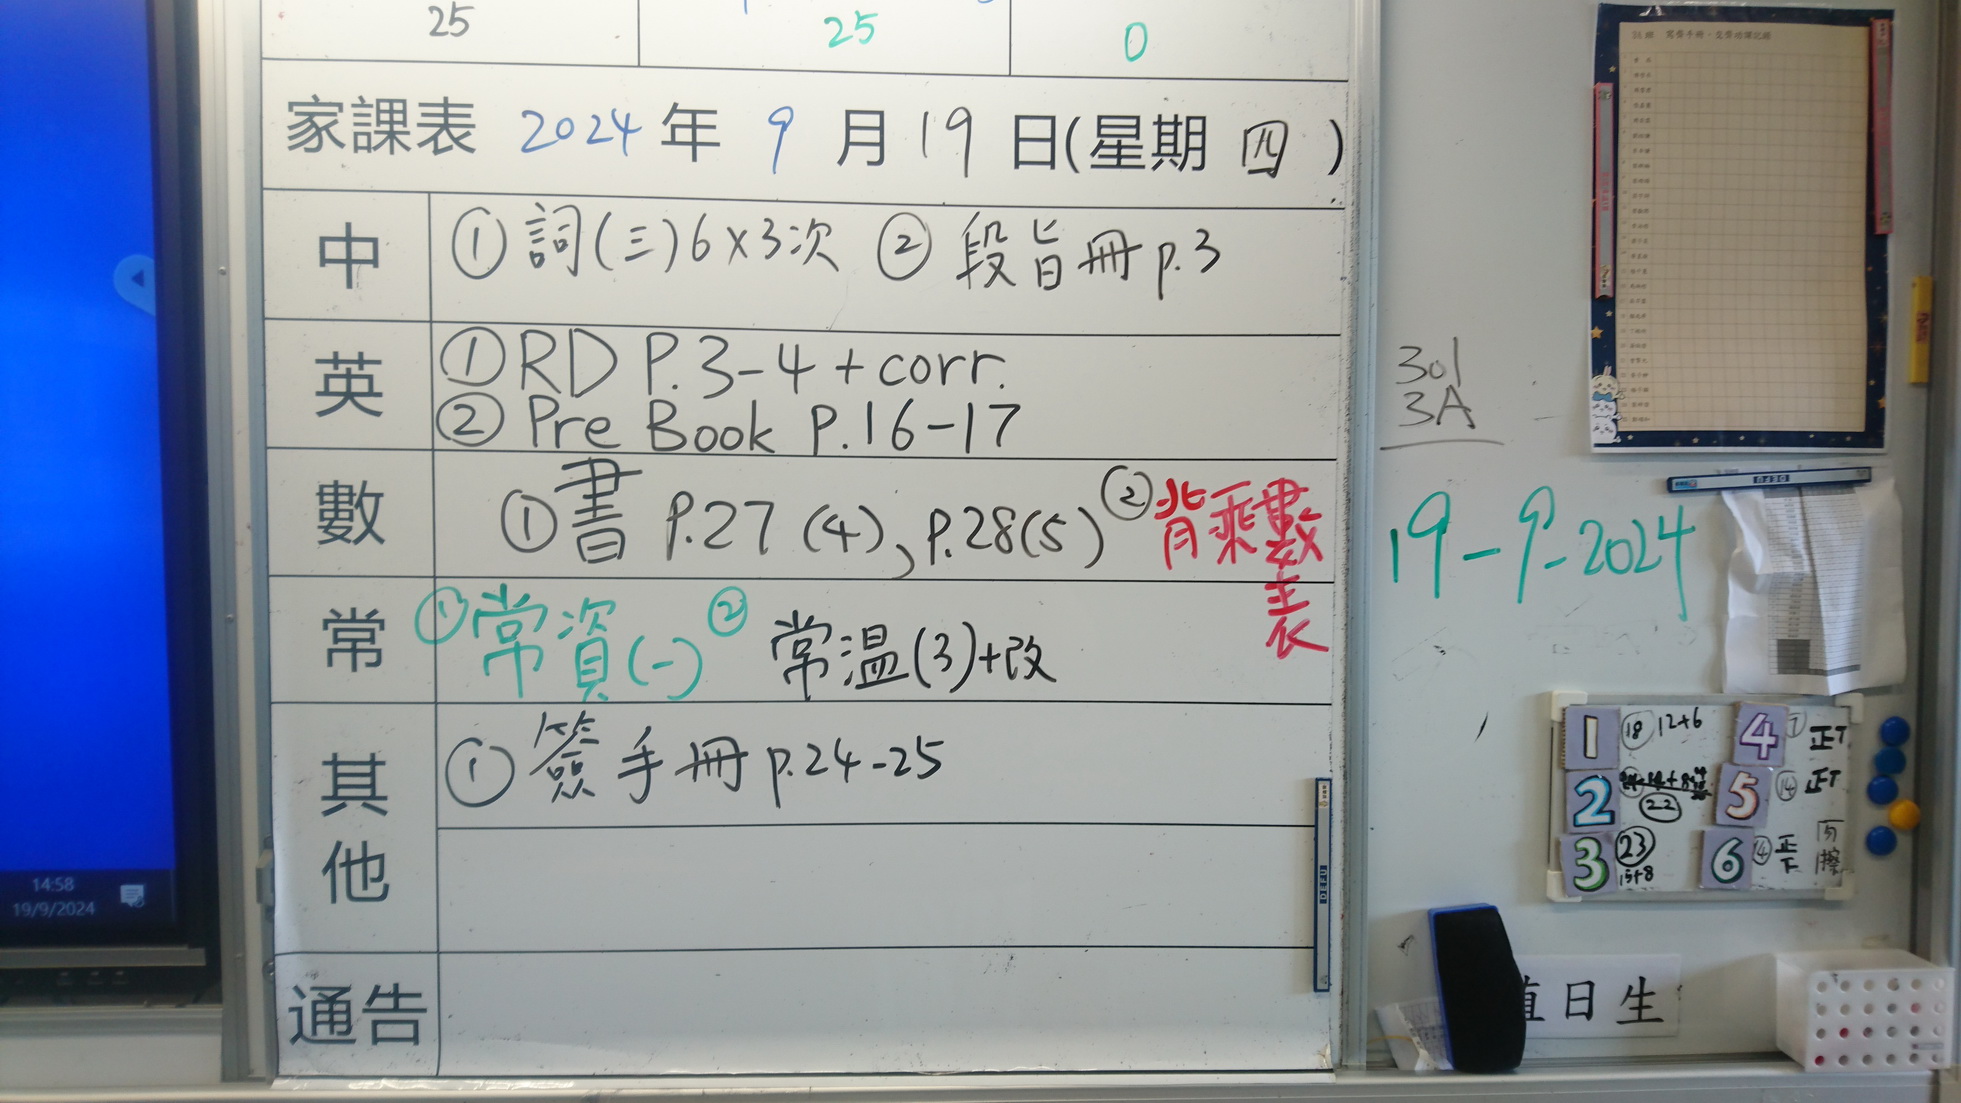 25 25 0
家課表 2024年 9月19日(星期四)
中 ①詞(三)6×3次 ②段旨冊p.3
英 ①RD P.3-4+corr.
②Pre Book P.16-17
數 ①書 P.27(4)、P.28(5) ②背乘數表
常 ①常資(一) ②常温(3)+改
其他 ①簽手冊p.24-25
通告
14:58
19/9/2024
301
3A
19-9-2024
DEFU
1 ⑱ 12+6
4 正T
2 ㉒
5 ⑭ 正T
3 ㉓ 15+8
6 ⑭ 正下
DEFU
值日生